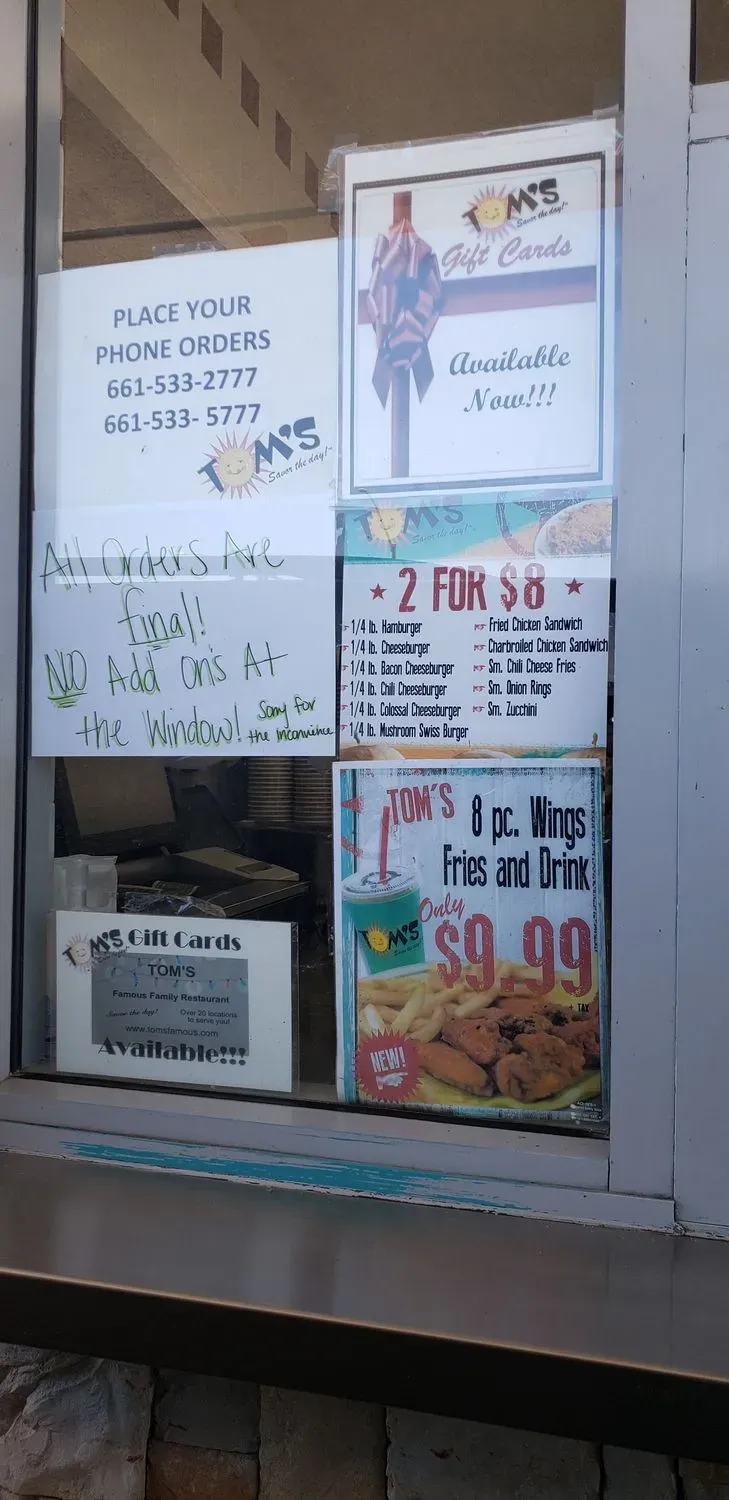 PLACE YOUR
PHONE ORDERS
661-533-2777
661-533- 5777
TOM'S
Savor the day!™
TOM'S
Savor the day!™
Gift Cards
Available
Now!!!
All Orders Are
final!
NO Add on's At
the Window! Sorry for
the inconvience
TOM'S
Savor the day!™
2 FOR $8
1/4 lb. Hamburger
1/4 lb. Cheeseburger
1/4 lb. Bacon Cheeseburger
1/4 lb. Chili Cheeseburger
1/4 lb. Colossal Cheeseburger
1/4 lb. Mushroom Swiss Burger
Fried Chicken Sandwich
Charbroiled Chicken Sandwich
Sm. Chili Cheese Fries
Sm. Onion Rings
Sm. Zucchini
TOM'S 8 pc. Wings
Fries and Drink
Only
$9.99
+ TAX
TOM'S
NEW!
TOM'S Gift Cards
TOM'S
Famous Family Restaurant
Savor the day!
Over 20 locations
to serve you!
www.tomsfamous.com
Available!!!